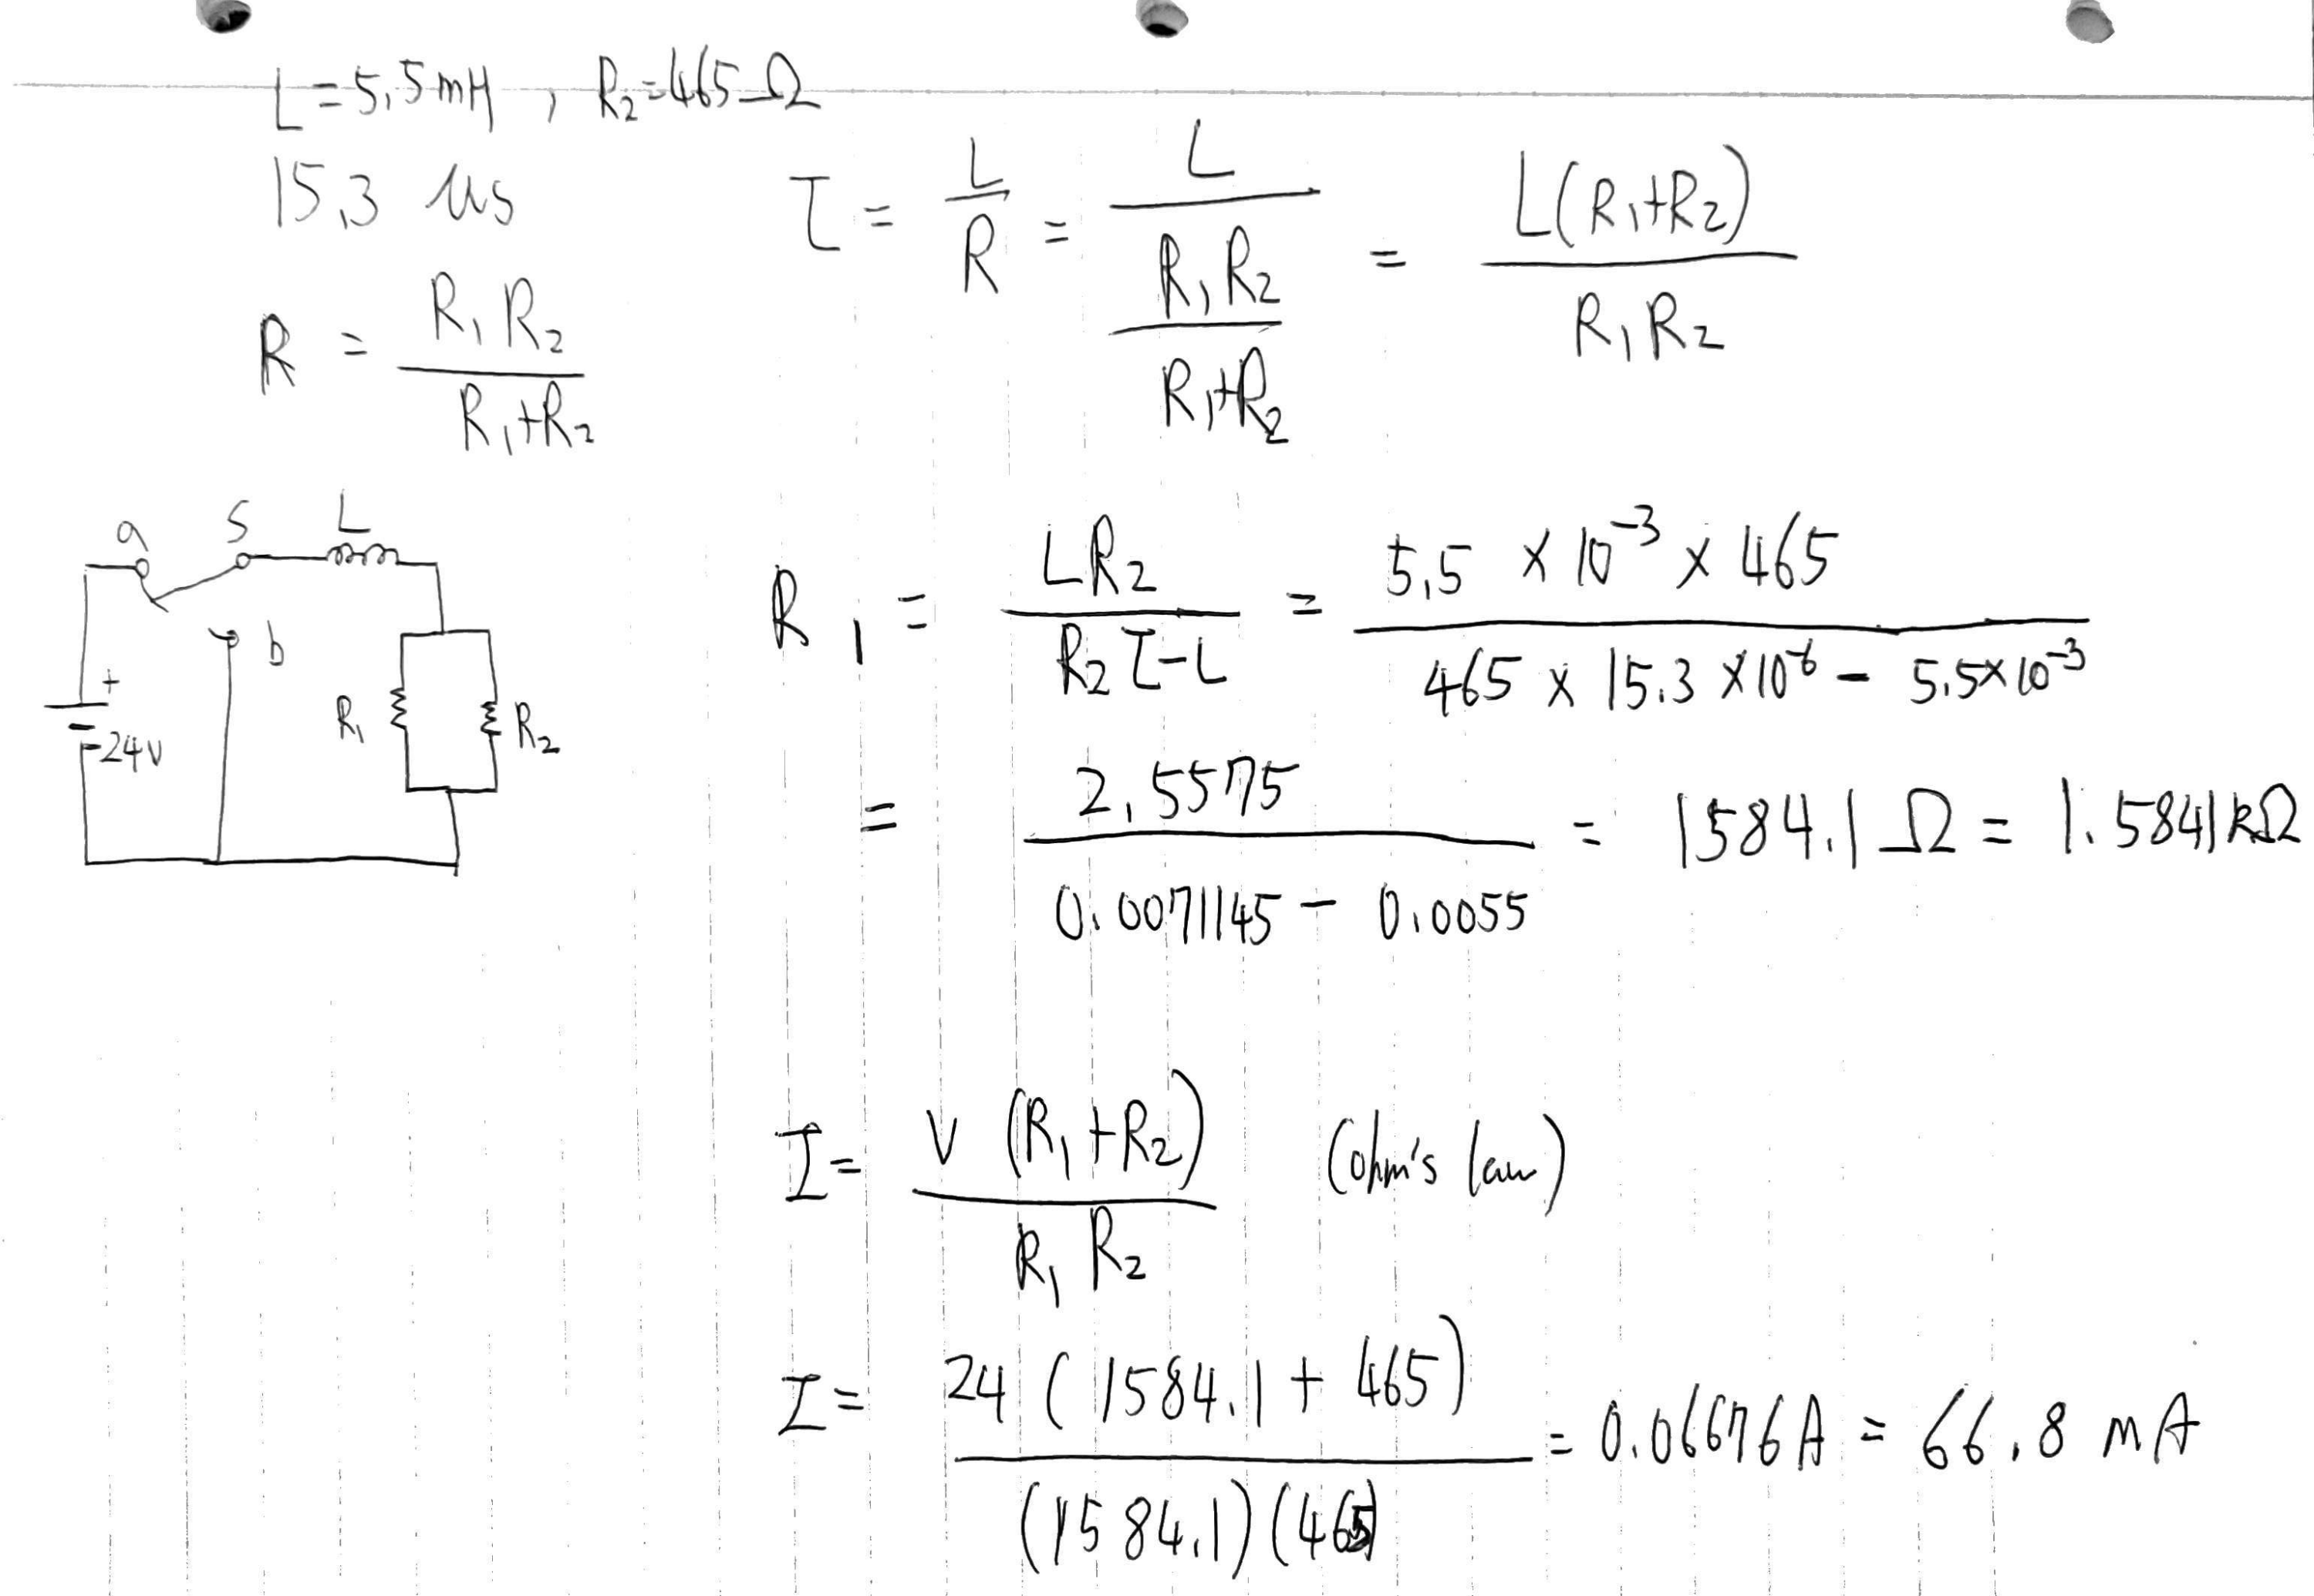 L = 5.5mH , R₂=465Ω
15.3 μs
τ = L/R = L/(R₁R₂/(R₁+R₂)) = L(R₁+R₂)/(R₁R₂)
R = R₁R₂/(R₁+R₂)
a S L
b
+
24V
R₁ R₂
R₁ = LR₂/(R₂τ-L) = (5.5 × 10⁻³ × 465)/(465 × 15.3 ×10⁻⁶ - 5.5×10⁻³)
= 2.5575/(0.0071145 - 0.0055) = 1584.1 Ω = 1.5841kΩ
I = V(R₁+R₂)/(R₁R₂) (ohm's law)
I = 24(1584.1 + 465)/((1584.1)(465) = 0.06676A = 66.8 mA